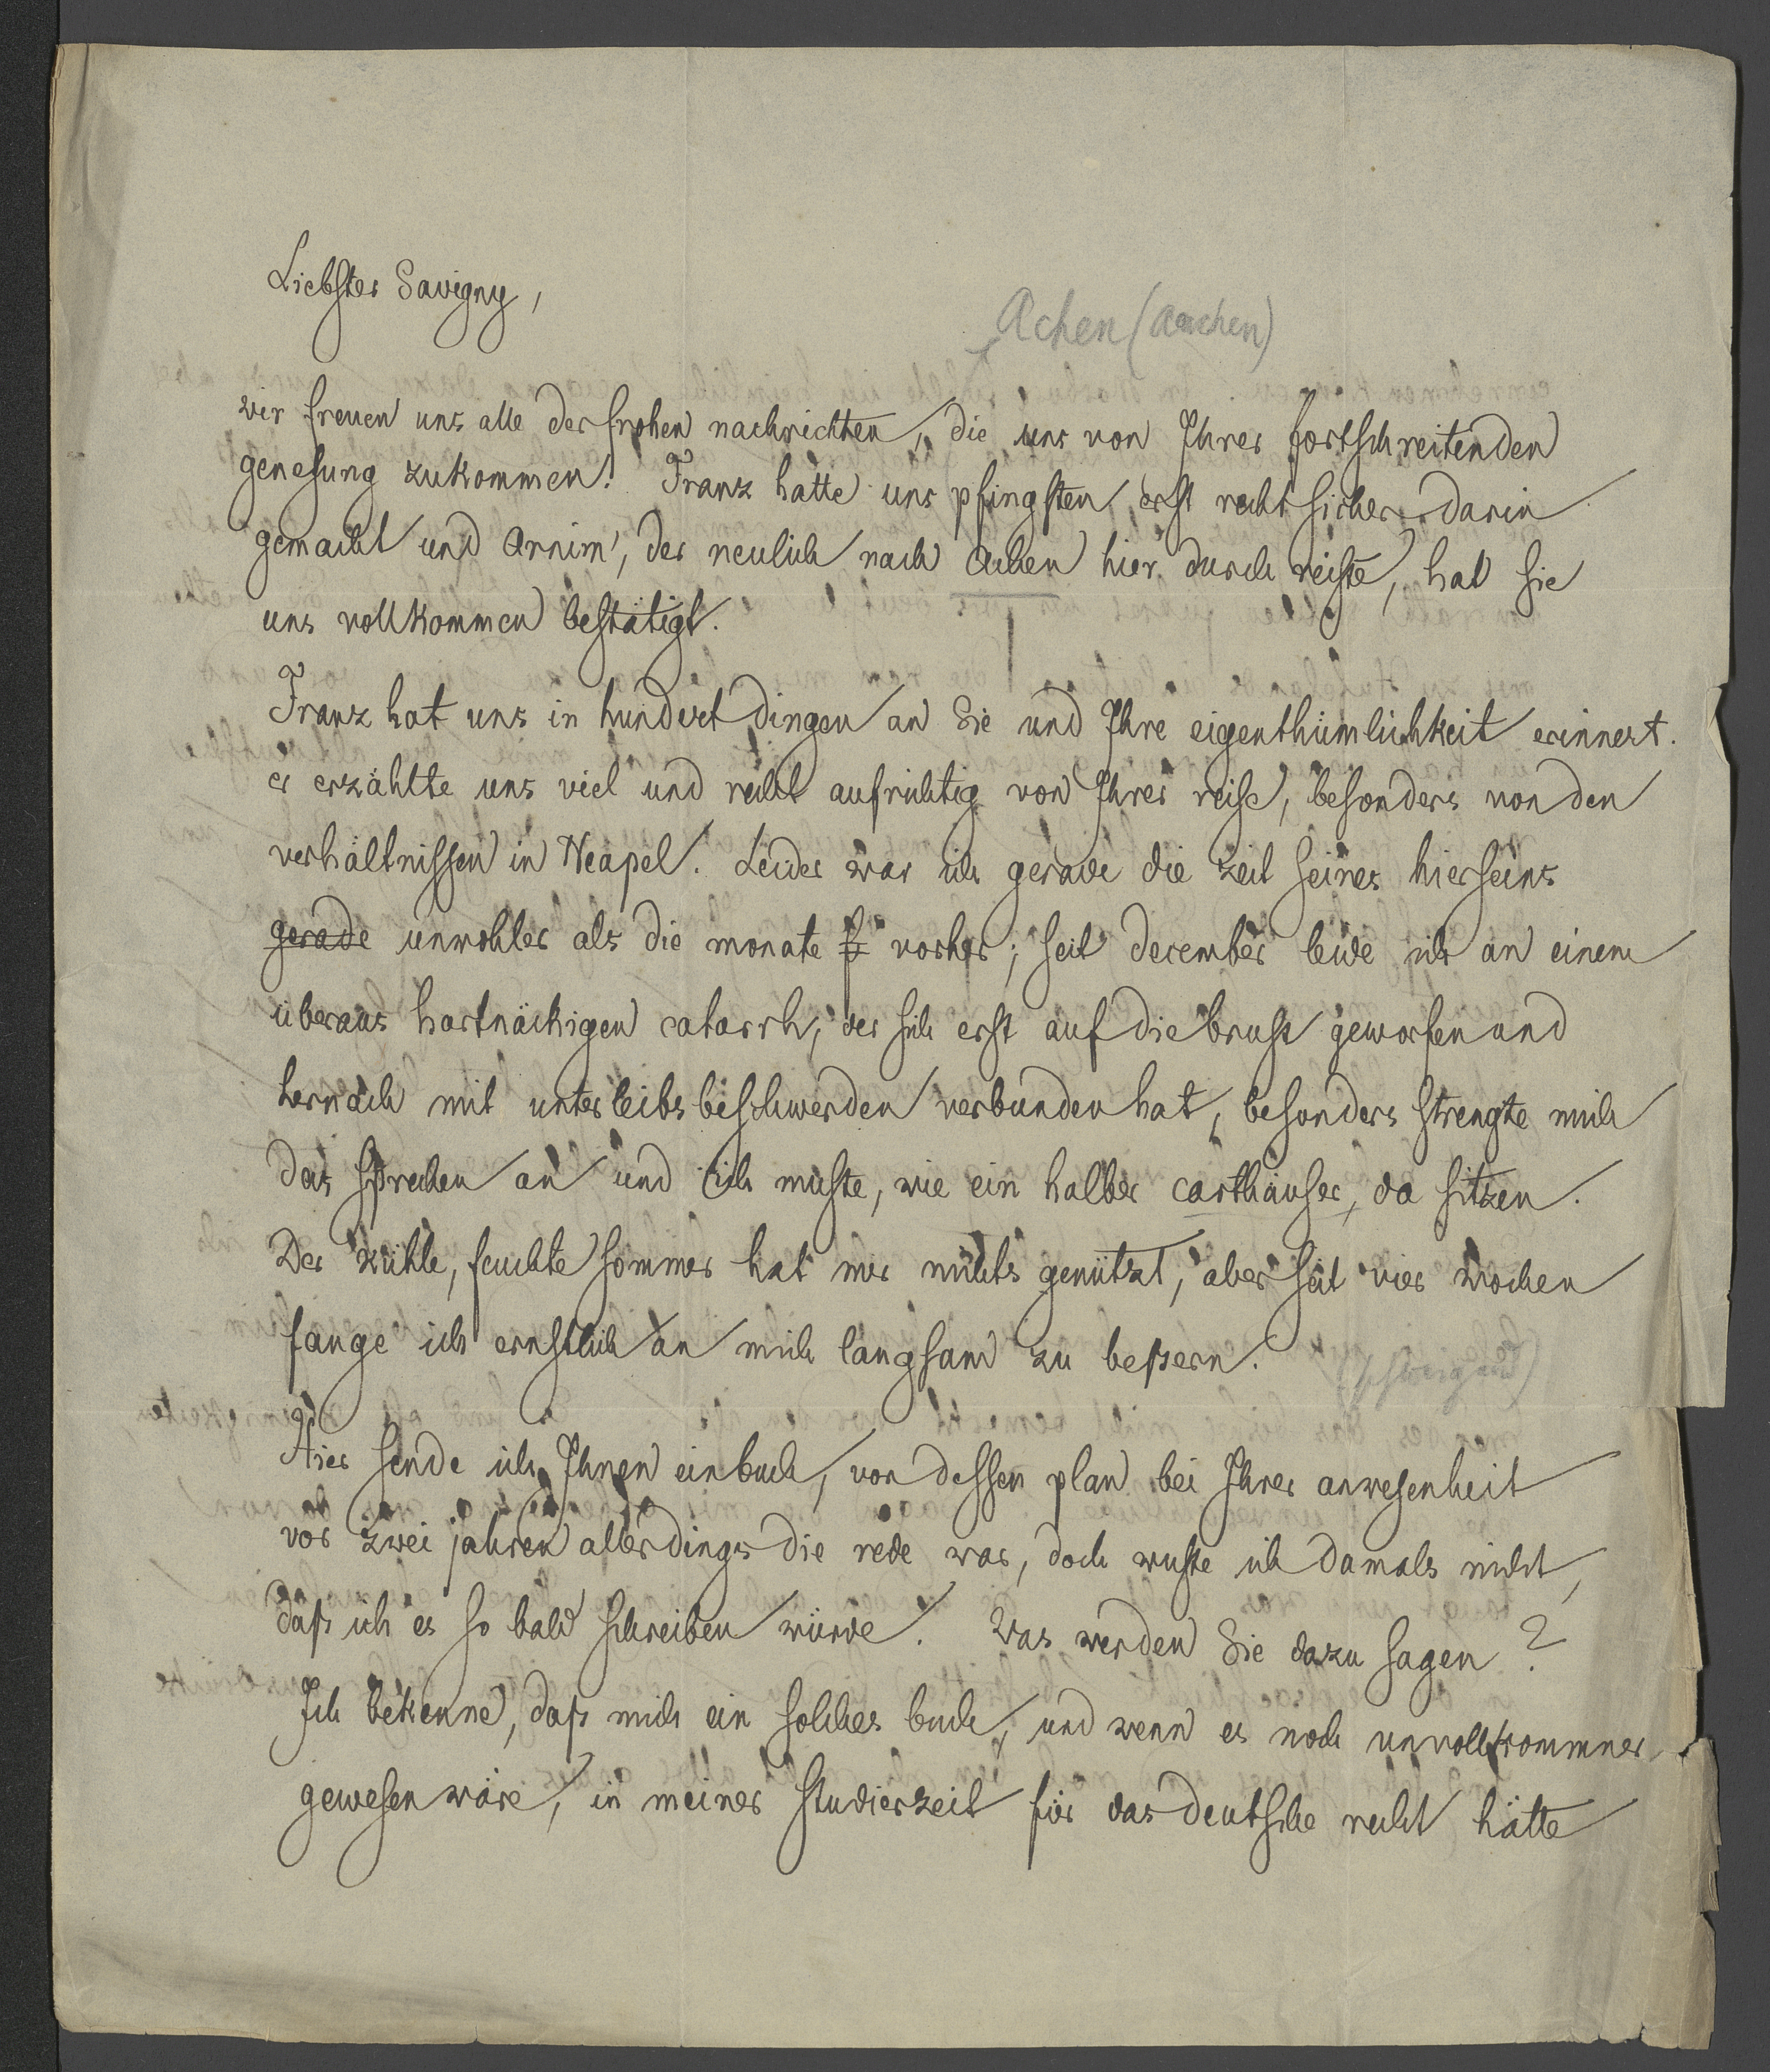 Liebster Savigny,
Achen (Aachen)
wir freuen uns alle der frohen nachrichten, die uns von Ihrer fortschreitenden
genesung zukommen. Franz hatte uns pfingsten erst recht sicher darin
gemacht und Arnim, der neulich nach Achen hier durch reiste, hat sie
uns vollkommen bestätigt.
Franz hat uns in hundert dingen an Sie und Ihre eigenthümlichkeit erinnert.
er erzählte uns viel und recht aufrichtig von Ihrer reise, besonders von den
verhältnissen in Neapel. Leider war ich gerade die zeit seines hierseins
gerade unwohler als die monate f vorher; seit december leide ich an einem
überaus hartnäckigen catarrh, der sich erst auf die brust geworfen und
hernach mit unterleibsbeschwerden verbunden hat, besonders strengte mich
das sprechen an und ich muste, wie ein halber carthäuser, da sitzen.
Der kühle, feuchte sommer hat mir nichts genützt, aber seit vier wochen
fange ich ernstlich an mich langsam zu beßern.
(schweigend)
Hier sende ich Ihnen ein buch, von dessen plan bei Ihrer anwesenheit
vor zwei jahren allerdings die rede war, doch wuste ich damals nicht,
daß ich es so bald schreiben würde. Was werden Sie dazu sagen?
Ich bekenne, daß mich ein solches buch, und wenn es noch unvollkommner
gewesen wäre, in meiner studierzeit für das deutsche recht hätte